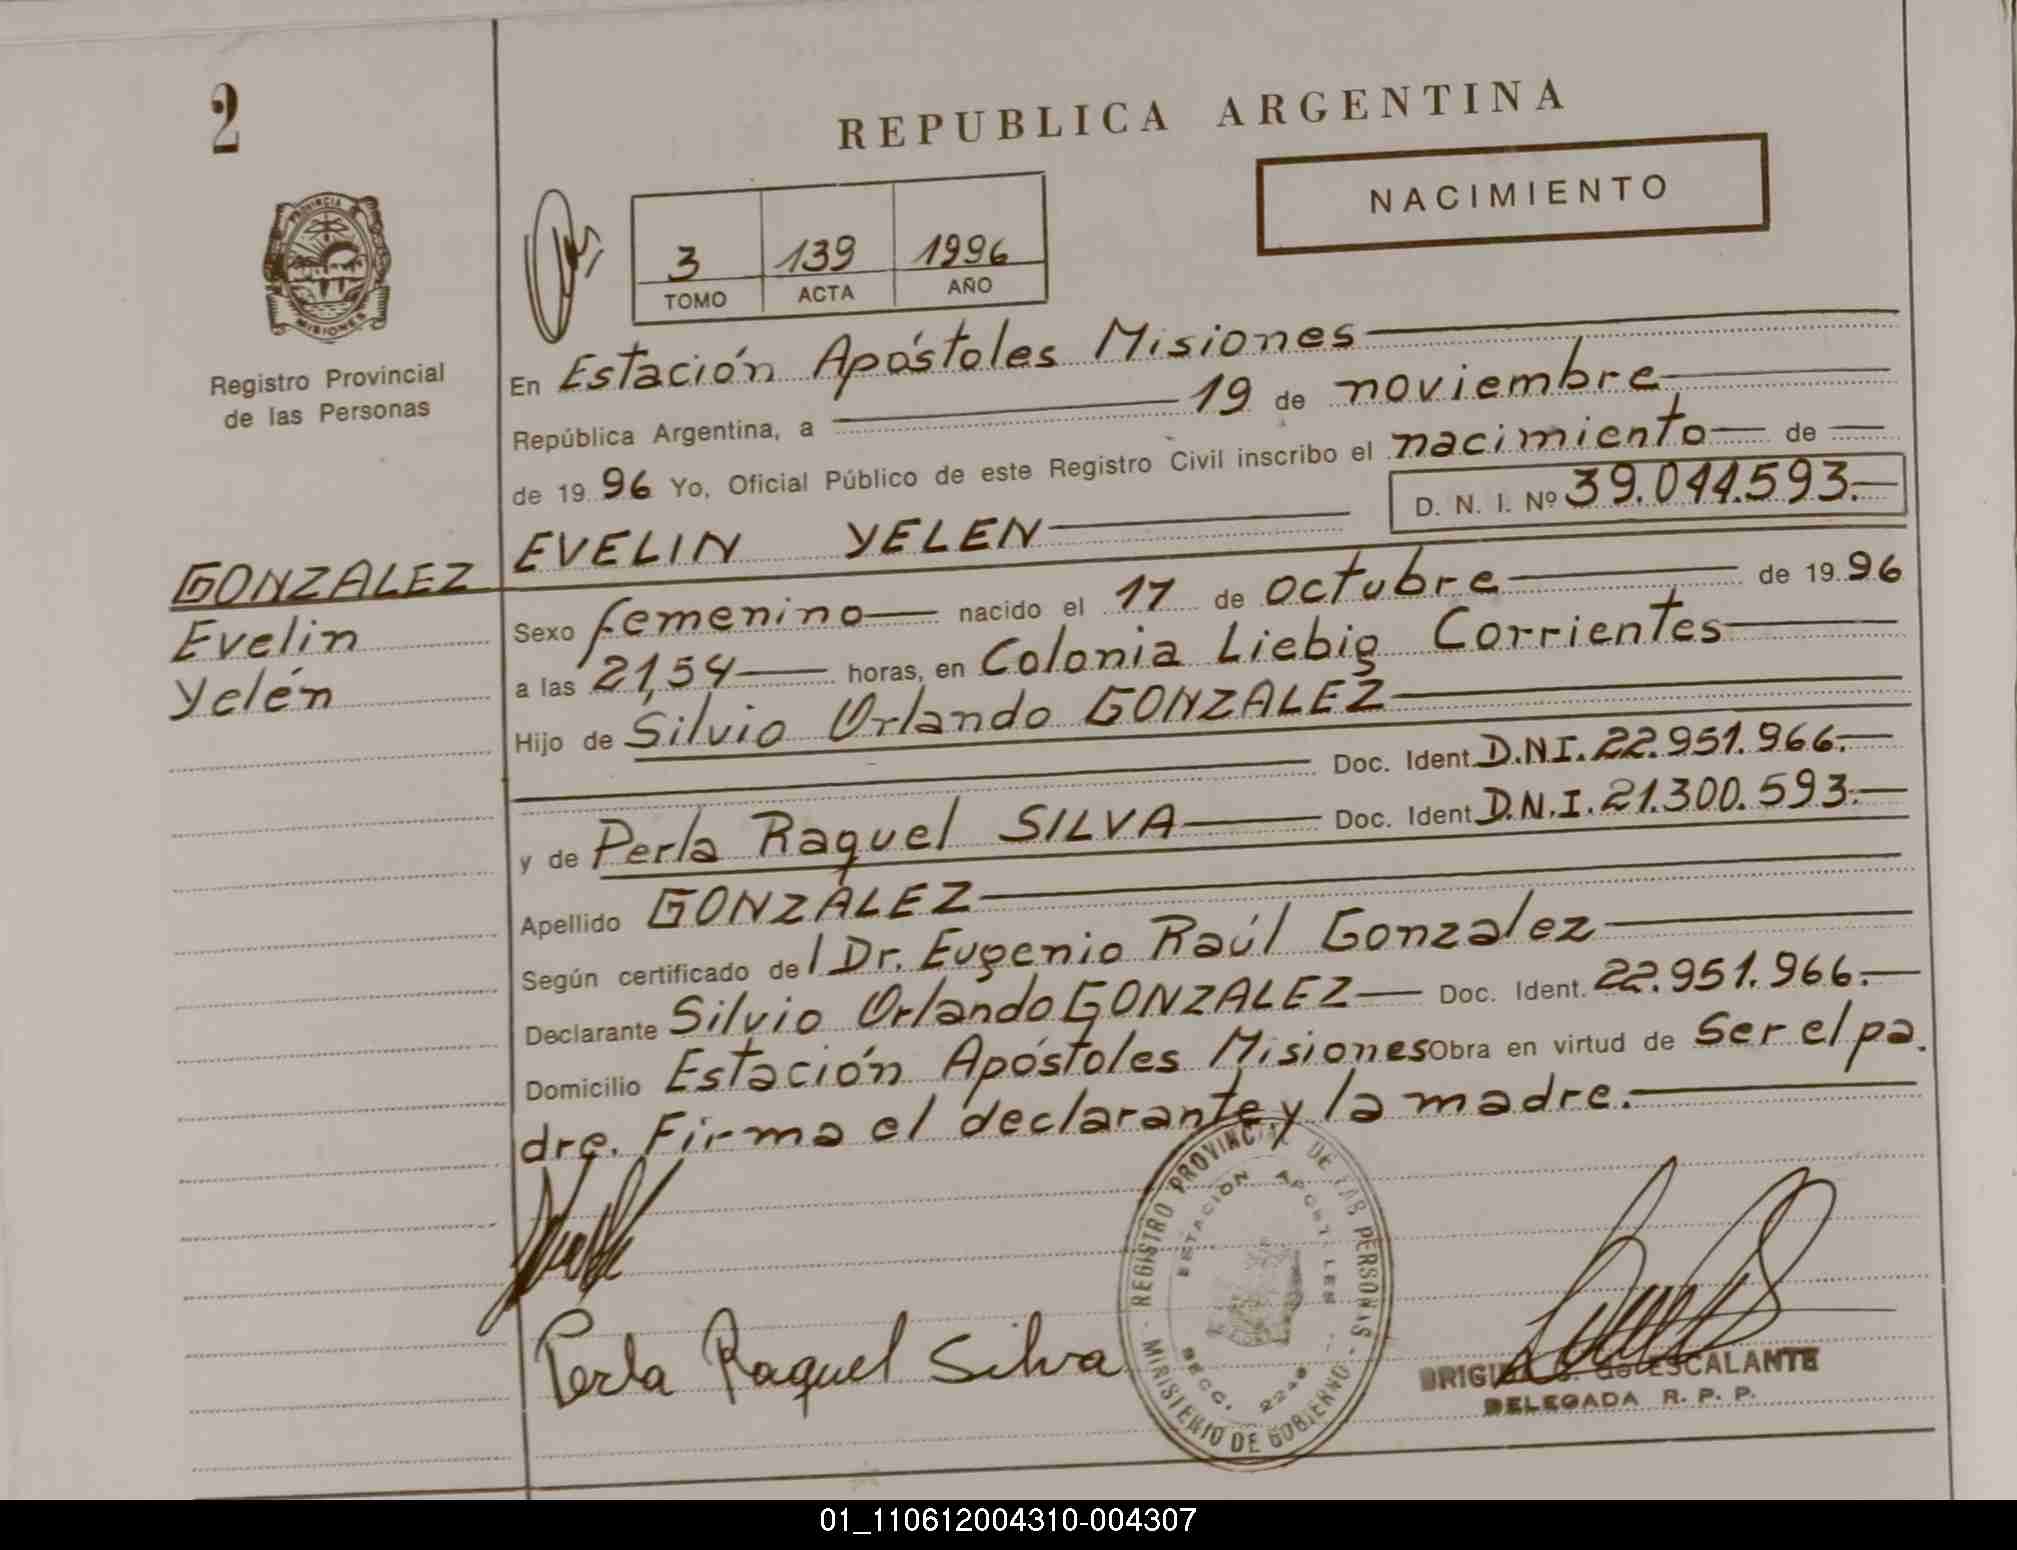 2
REPUBLICA ARGENTINA
NACIMIENTO
3 139 1996
TOMO ACTA AÑO
PROVINCIA
MISIONES
Registro Provincial
de las Personas
En Estación Apóstoles Misiones
República Argentina, a 19 de noviembre
de 1996 Yo, Oficial Público de este Registro Civil inscribo el nacimiento de
D. N. I. Nº 39.044.593.
EVELIN YELEN
GONZALEZ
Evelin
Yelén
Sexo femenino nacido el 17 de octubre de 1996
a las 21,54 horas, en Colonia Liebig Corrientes
Hijo de Silvio Orlando GONZALEZ
Doc. Ident. D.N.I. 22.951.966.
y de Perla Raquel SILVA Doc. Ident. D.N.I. 21.300.593.
Apellido GONZALEZ
Según certificado del Dr. Eugenio Raúl Gonzalez
Declarante Silvio Orlando GONZALEZ Doc. Ident. 22.951.966.
Domicilio Estación Apóstoles Misiones Obra en virtud de Ser el pa.
dre. Firma el declarante y la madre.
REGISTRO PROVINCIAL DE LAS PERSONAS
ESTACION APOSTOLES
SECC. 2240
MINISTERIO DE GOBIERNO
Perla Raquel Silva
ESCALANTE
DELEGADA R. P. P.
01_110612004310-004307